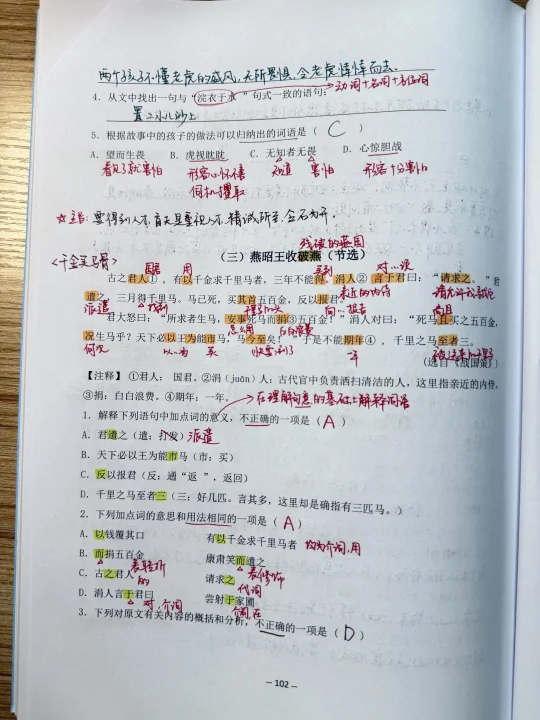 两个孩子不懂老虎的威风,无所畏惧,令老虎悻悻而去.
4. 从文中找出一句与“浣衣于水”句式一致的语句: 动词+名词+方位词
置二小儿沙上
5. 根据故事中的孩子的做法可以归纳出的词语是( C )
A. 望而生畏 B. 虎视眈眈 C. 无知者无畏 D. 心惊胆战
看见了就害怕 形容心怀不善 知道 害怕 形容十分害怕
伺机攫取
(三)燕昭王收破燕(节选)
残破的燕国
<千金买马骨>
国君 用 买到 对…说
古之君人①,有以千金求千里马者,三年不能得。涓人②言于君曰:“请求之。”君
遣之,三月得千里马。马已死,买其首五百金,反以报君。
派遣 亲近的内侍 请允许我
君大怒曰:“所求者生马,安事死马而捐③五百金!”涓人对曰:“死马且买之五百金,
怎么用 白白浪费 尚且
况生马乎?天下必以王为能市马,马今至矣!”于是不能期年④,千里之马至者三。
何况 以…为 买 快要来了 一年
(选自《战国策》)
【注释】①君人: 国君。②涓(juān)人:古代官中负责洒扫清洁的人,这里指亲近的内侍。
③捐:白白浪费。④期年:一年。
在理解句意的基础上解释词语
1. 解释下列语句中加点词的意义,不正确的一项是( A )
A. 君遣之(遣:打发) 派遣
B. 天下必以王为能市马(市:买)
C. 反以报君(反:通“返 ”,返回)
D. 千里之马至者三(三:好几匹。言其多,这里却是确指有三匹马。)
2. 下列加点词的意思和用法相同的一项是( A )
A. 以钱覆其口 有以千金求千里马者 均为介词,用
B. 而捐五百金 康肃笑而遣之
表转折 表修饰
C. 古之君人 请求之
的 代词
D. 涓人言于君曰 尝射于家圃
对,介词 介词,在
3. 下列对原文有关内容的概括和分析,不正确的一项是( D )
— 102 —